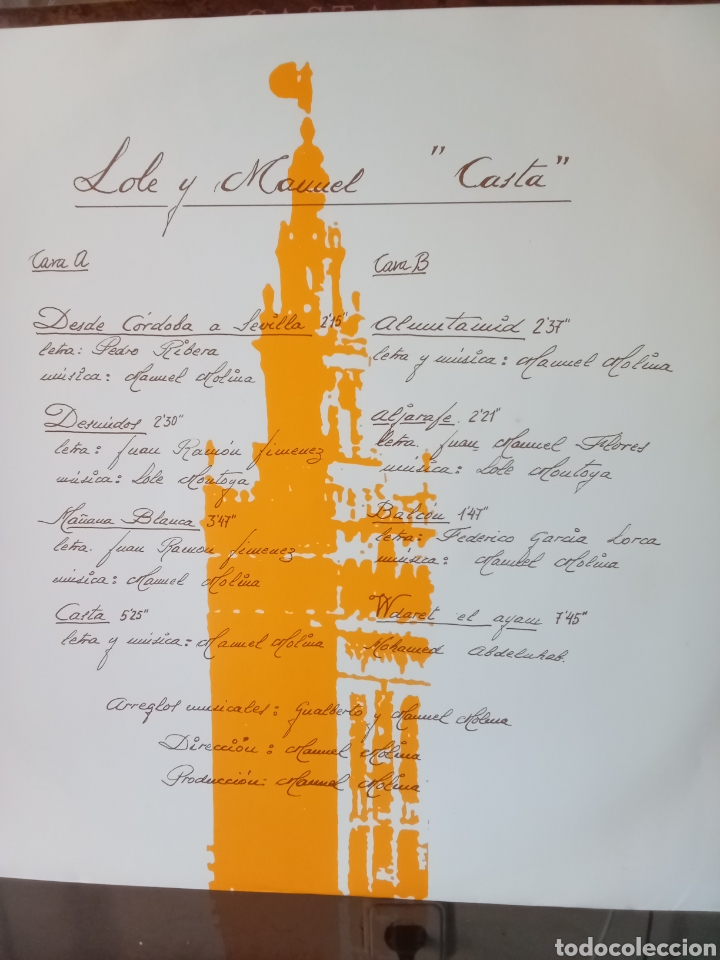 CASTA
Lole y Manuel "Casta"
Cara A
Desde Córdoba a Sevilla 2'15"
letra: Pedro Ribera
música: Manuel Molina
Desnudos 2'30"
letra: Juan Ramón Jimenez
música: Lole Montoya
Mañana Blanca 3'47"
letra. Juan Ramón Jimenez
música: Manuel Molina
Casta 5'25"
letra y música: Manuel Molina
Cara B
Almutamid 2'37"
letra y música: Manuel Molina
Aljarafe 2'21"
letra. Juan Manuel Flores
música: Lole Montoya
Balcón 1'47"
letra: Federico García Lorca
música: Manuel Molina
Wdaret el ayam 7'45"
Mohamed Abdeluhab.
Arreglos musicales: Gualberto y Manuel Molina
Dirección: Manuel Molina
Producción: Manuel Molina
todocoleccion